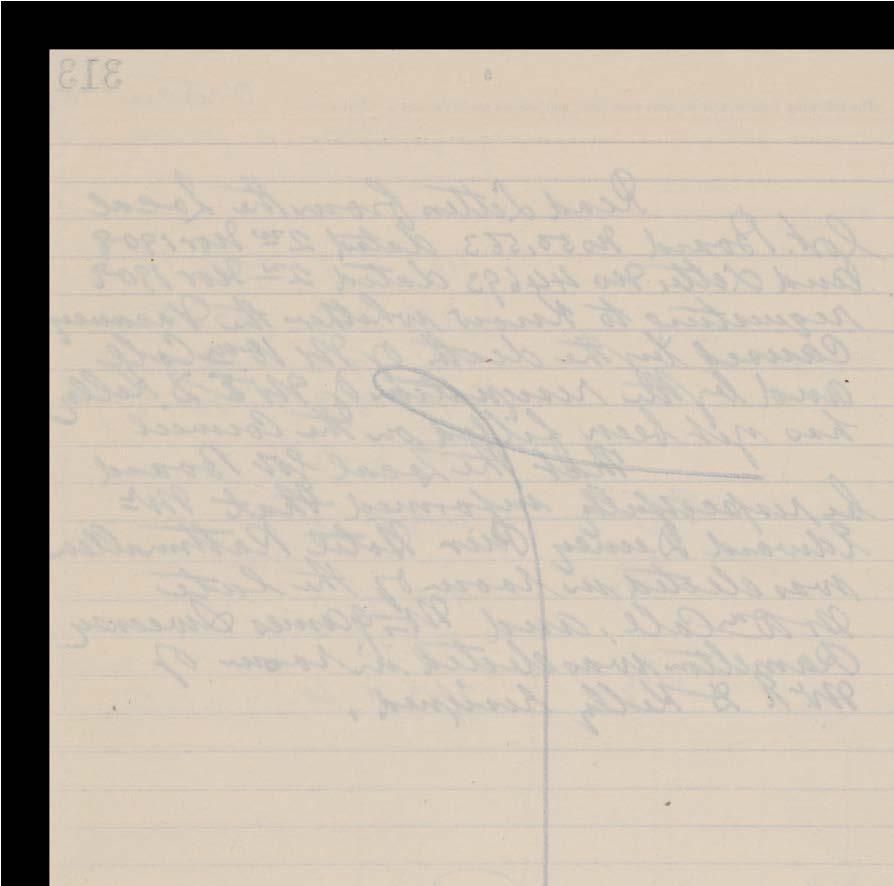 313
Read Letter from the Local
Govt. Board No 50,563 dated 2nd Nov 1908
and Letter No 44693 dated 2nd Nov 1908
requesting to know whether the Vacancy
Caused by the death of Mr Wm Call
and by the resignation of Mr D. Kelly
has yet been filled on the Council
That the Local Gov Board
be respectfully informed that Mr
Edward Deeney Pier Hotel Rathmullan
was elected in room of the late
Mr Wm Call, and Mr James Sweeney
Ramelton was elected in room of
Mr D Kelly resigned.